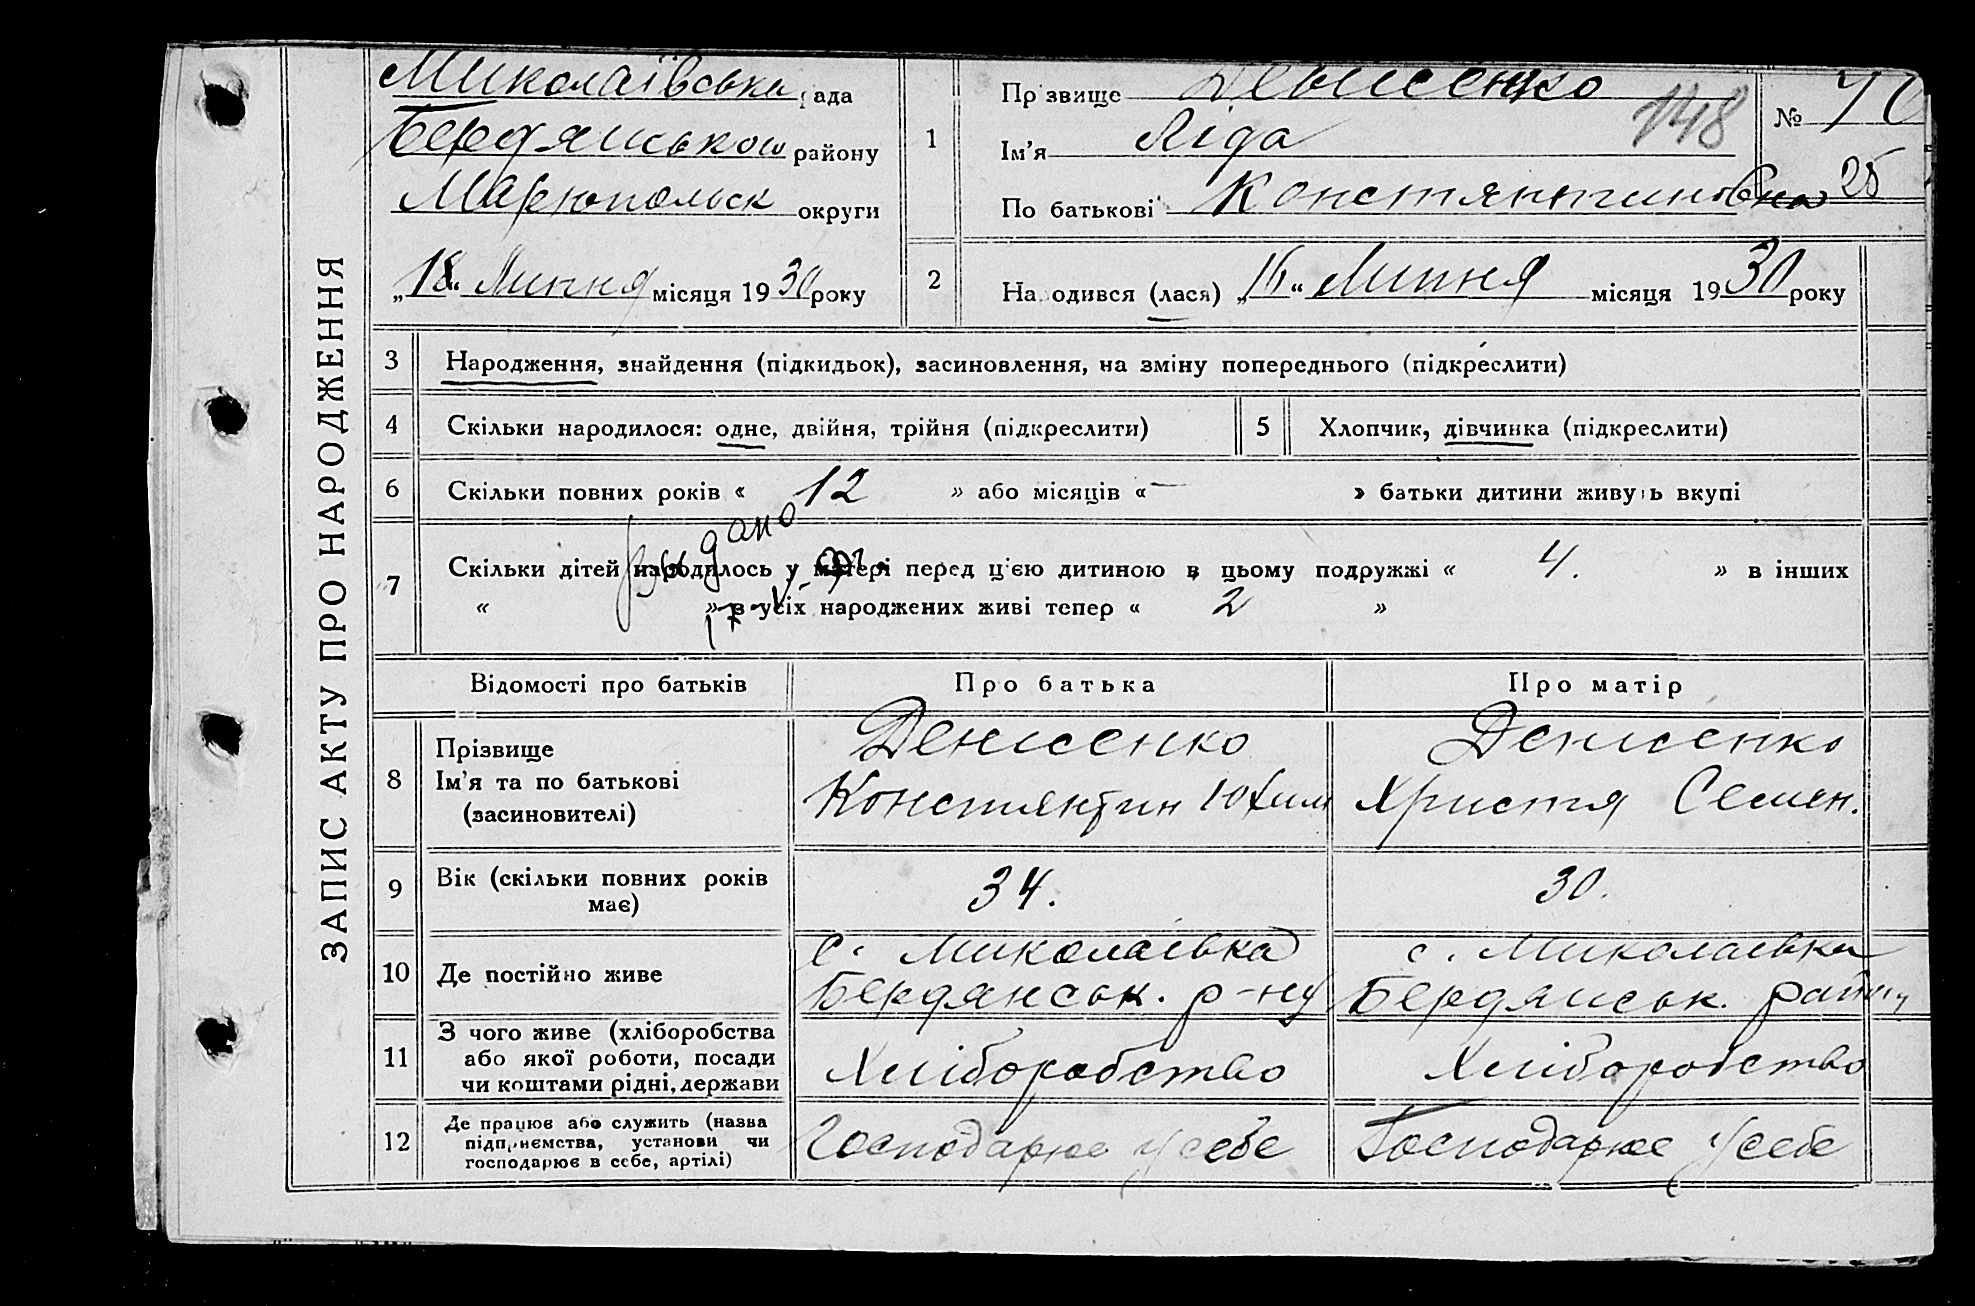 ЗАПИС АКТУ ПРО НАРОДЖЕННЯ
Миколаївська рада
Бердянського району
Марюпольск округи
„18“ Липня місяця 1930 року
1
Прізвище Денисенко
148
№
Ім'я Ліда
По батькові Констянтиновна
25
2
Народився (лася) „16“ Липня місяця 1930 року
3 Народження, знайдення (підкидьок), засиновлення, на зміну попереднього (підкреслити)
4 Скільки народилося: одне, двійня, трійня (підкреслити)
5 Хлопчик, дівчинка (підкреслити)
6 Скільки повних років « 12 » або місяців « — » батьки дитини живуть вкупі
7 Скільки дітей народилось у матері перед ц'єю дитиною в цьому подружжі « 4. » в інших
« » з усіх народжених живі тепер « 2 »
Відомості про батьків Про батька Про матір
8 Прізвище
Ім'я та по батькові
(засиновителі)
Денисенко
Констянтин Юхим
Денисенко
Христя Семен.
9 Вік (скільки повних років
має)
34.
30.
10 Де постійно живе
с. Миколаївка
Бердянськ. р-ну
с. Миколаївка
Бердянськ. району
11 З чого живе (хліборобства
або якої роботи, посади
чи коштами рідні, держави
Хліборобство
Хліборобство
12 Де працює або служить (назва
підприємства, установи чи
господарює в себе, артілі)
Господарює у себе
Господарює у себе